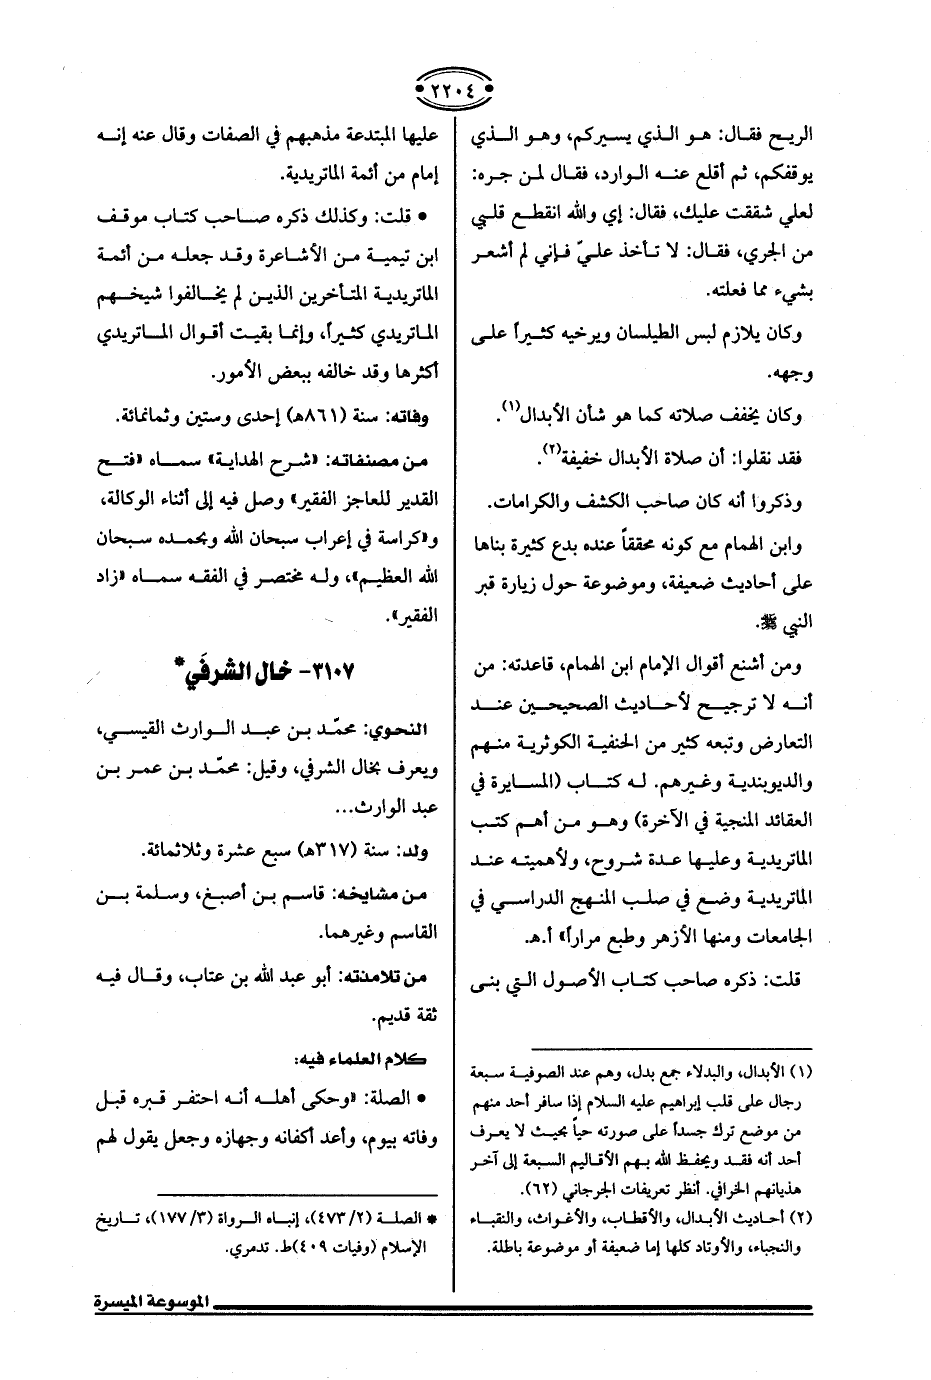 ٢٢٠٤
الريح فقال: هو الذي يسيركم، وهو الذي
يوقفكم، ثم أقلع عنه الوارد، فقال لمن جره:
لعلي شققت عليك، فقال: إي والله انقطع قلبي
من الجري، فقال: لا تأخذ عليّ فإني لم أشعر
بشيء مما فعلته.
وكان يلازم لبس الطيلسان ويرخيه كثيراً على
وجهه.
وكان يخفف صلاته كما هو شأن الأبدال(١).
فقد نقلوا: أن صلاة الأبدال خفيفة(٢).
وذكروا أنه كان صاحب الكشف والكرامات.
وابن الهمام مع كونه محققاً عنده بدع كثيرة بناها
على أحاديث ضعيفة، وموضوعة حول زيارة قبر
النبي ﷺ.
ومن أشنع أقوال الإمام ابن الهمام، قاعدته: من
أنه لا ترجيح لأحاديث الصحيحين عند
التعارض وتبعه كثير من الحنفية الكوثرية منهم
والديوبندية وغيرهم. له كتاب (المسايرة في
العقائد المنجية في الآخرة) وهو من أهم كتب
الماتريدية وعليها عدة شروح، ولأهميته عند
الماتريدية وضع في صلب المنهج الدراسي في
الجامعات ومنها الأزهر وطبع مراراً» أ.هـ.
قلت: ذكره صاحب كتاب الأصول التي بنى
(١) الأبدال، والبدلاء جمع بدل، وهم عند الصوفية سبعة
رجال على قلب إبراهيم عليه السلام إذا سافر أحد منهم
من موضع ترك جسداً على صورته حياً بحيث لا يعرف
أحد أنه فقد ويحفظ الله بهم الأقاليم السبعة إلى آخر
هذيانهم الخرافي. أنظر تعريفات الجرجاني (٦٢).
(٢) أحاديث الأبدال، والأقطاب، والأغواث، والنقباء
والنجباء، والأوتاد كلها إما ضعيفة أو موضوعة باطلة.
عليها المبتدعة مذهبهم في الصفات وقال عنه إنه
إمام من أئمة الماتريدية.
• قلت: وكذلك ذكره صاحب كتاب موقف
ابن تيمية من الأشاعرة وقد جعله من أئمة
الماتريدية المتأخرين الذين لم يخالفوا شيخهم
الماتريدي كثيراً، وإنما بقيت أقوال الماتريدي
أكثرها وقد خالفه ببعض الأمور.
وفاته: سنة (٨٦١هـ) إحدى وستين وثمانمائة.
من مصنفاته: «شرح الهداية» سماه «فتح
القدير للعاجز الفقير» وصل فيه إلى أثناء الوكالة،
و«كراسة في إعراب سبحان الله وبحمده سبحان
الله العظيم»، وله مختصر في الفقه سماه «زاد
الفقير».
٣١٠٧- خال الشرفَي*
النحوي: محمّد بن عبد الوارث القيسي،
ويعرف بخال الشرفي، وقيل: محمّد بن عمر بن
عبد الوارث...
ولد: سنة (٣١٧هـ) سبع عشرة وثلاثمائة.
من مشايخه: قاسم بن أصبغ، وسلمة بن
القاسم وغيرهما.
من تلامذته: أبو عبد الله بن عتاب، وقال فيه
ثقة قديم.
كلام العلماء فيه:
• الصلة: «وحكى أهله أنه احتفر قبره قبل
وفاته بيوم، وأعد أكفانه وجهازه وجعل يقول لهم
* الصلة (٤٧٣/٢)، إنباه الرواة (١٧٧/٣)، تاريخ
الإسلام (وفيات ٤٠٩)ط. تدمري.
الموسوعة الميسرة